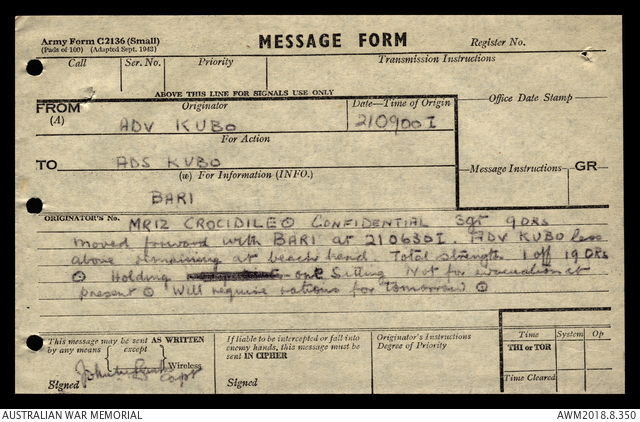 Army Form C2136 (Small)
(Pads of 100) (Adapted Sept. 1943)
MESSAGE FORM
Register No.
Call
Ser. No.
Priority
Transmission Instructions
ABOVE THIS LINE FOR SIGNALS USE ONLY
FROM
(A)
Originator
ADV KUBO
Date—Time of Origin
210900 I
Office Date Stamp
For Action
TO
ADS KUBO
(w) For Information (INFO.)
BARI
Message Instructions
GR
ORIGINATOR'S No.
MR12 CROCIDILE ⊙ CONFIDENTIAL Sgt 9 ORs
moved forward with BARI at 210630I. ADV KUBO less
above remaining at beach head. Total strength 1 off 19 ORs
⊙ Holding one Sitting Not for evacuation at
present ⊙ Will require rations for tomorrow ⊙
This message may be sent AS WRITTEN
by any means { except }
Wireless
Signed
Capt
If liable to be intercepted or fall into
enemy hands, this message must be
sent IN CIPHER
Signed
Originator's Instructions
Degree of Priority
Time
System
Op
THI or TOR
Time Cleared
AUSTRALIAN WAR MEMORIAL
AWM2018.8.350